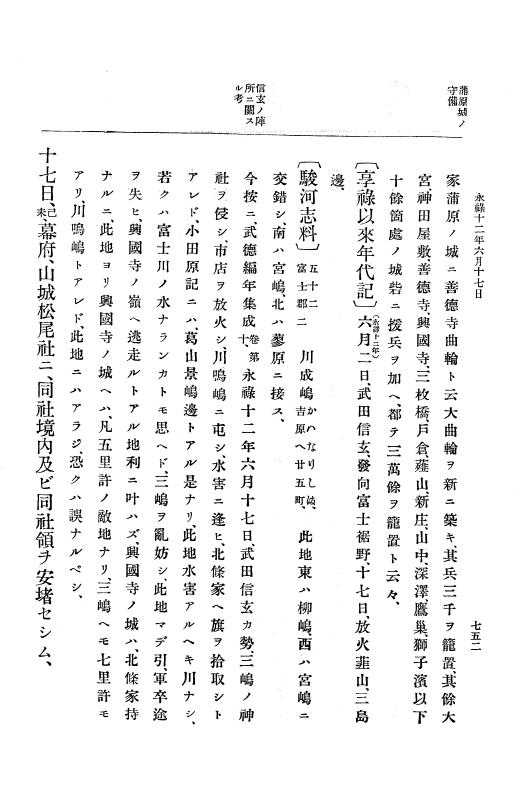 永祿十二年六月十七日
七五二
蒲原城ノ
守備
信玄ノ陣
所ニ關ス
ル考
家蒲原ノ城ニ善德寺曲輪ト云大曲輪ヲ新ニ築キ其兵三千ヲ籠置、其餘大
宮神田屋敷、善德寺、興國寺、三枚橋、戸倉、薤山、新庄、山中、深澤、鷹巢、獅子濱以下
十餘箇處ノ城砦ニ援兵ヲ加ヘ、都テ三萬餘ヲ籠置ト云々、
〔享祿以來年代記〕(永祿十二年)六月二日、武田信玄、發向富士裾野、十七日、放火韮山、三島
邊、
〔駿河志料〕五十二富士郡二 川成嶋かハなりしま、吉原ヘ廿五町、 此地東ハ柳嶋、西ハ宮嶋ニ
交錯シ、南ハ宮嶋、北ハ蓼原ニ接ス、
今按ニ、武德編年集成卷第十、永祿十二年六月十七日、武田信玄カ勢、三嶋ノ神
社ヲ侵シ、市店ヲ放火シ、川鳴嶋ニ屯シ、水害ニ逢ヒ、北條家ヘ旗ヲ拾取シト
アレド、小田原記ニハ、葛山景嶋邊トアル是ナリ、此地水害アルヘキ川ナシ、
若クハ富士川ノ水ナランカトモ思ヘド、三嶋ヲ亂妨シ、此地マデ引、軍卒途
ヲ失ヒ、興國寺ノ嶺ヘ逃走ルトアル地利ニ叶ハズ、興國寺ノ城ハ、北條家持
ナルニ、此地ヨリ興國寺ノ城ヘハ、凡五里許ノ敵地ナリ、三嶋ヘモ七里許モ
アリ、川鳴嶋トアレド、此地ニハアラジ、恐クハ誤ナルベシ、
十七日、己未幕府、山城松尾社ニ、同社境內及ビ同社領ヲ安堵セシム、